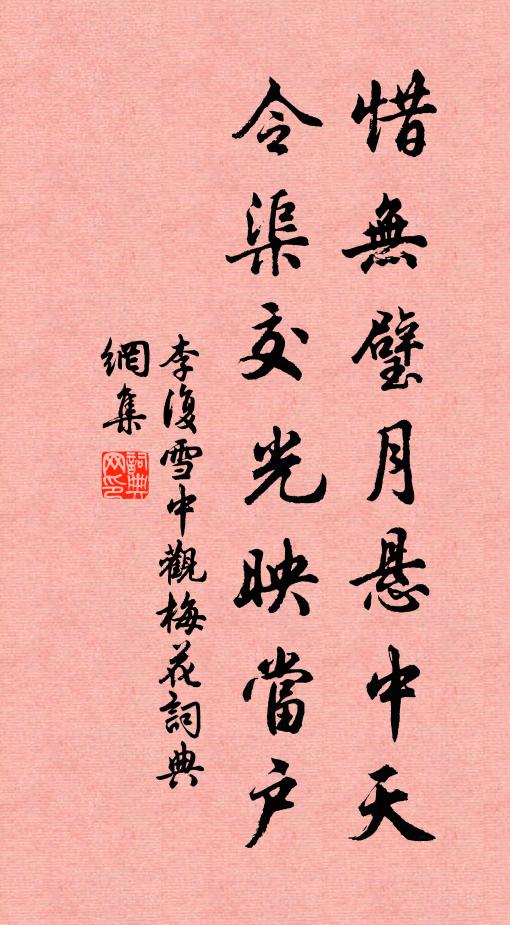 惜無璧月悬中天
令渠交光映當户
李復雪中觀梅花詞典
網集
詞典
网印